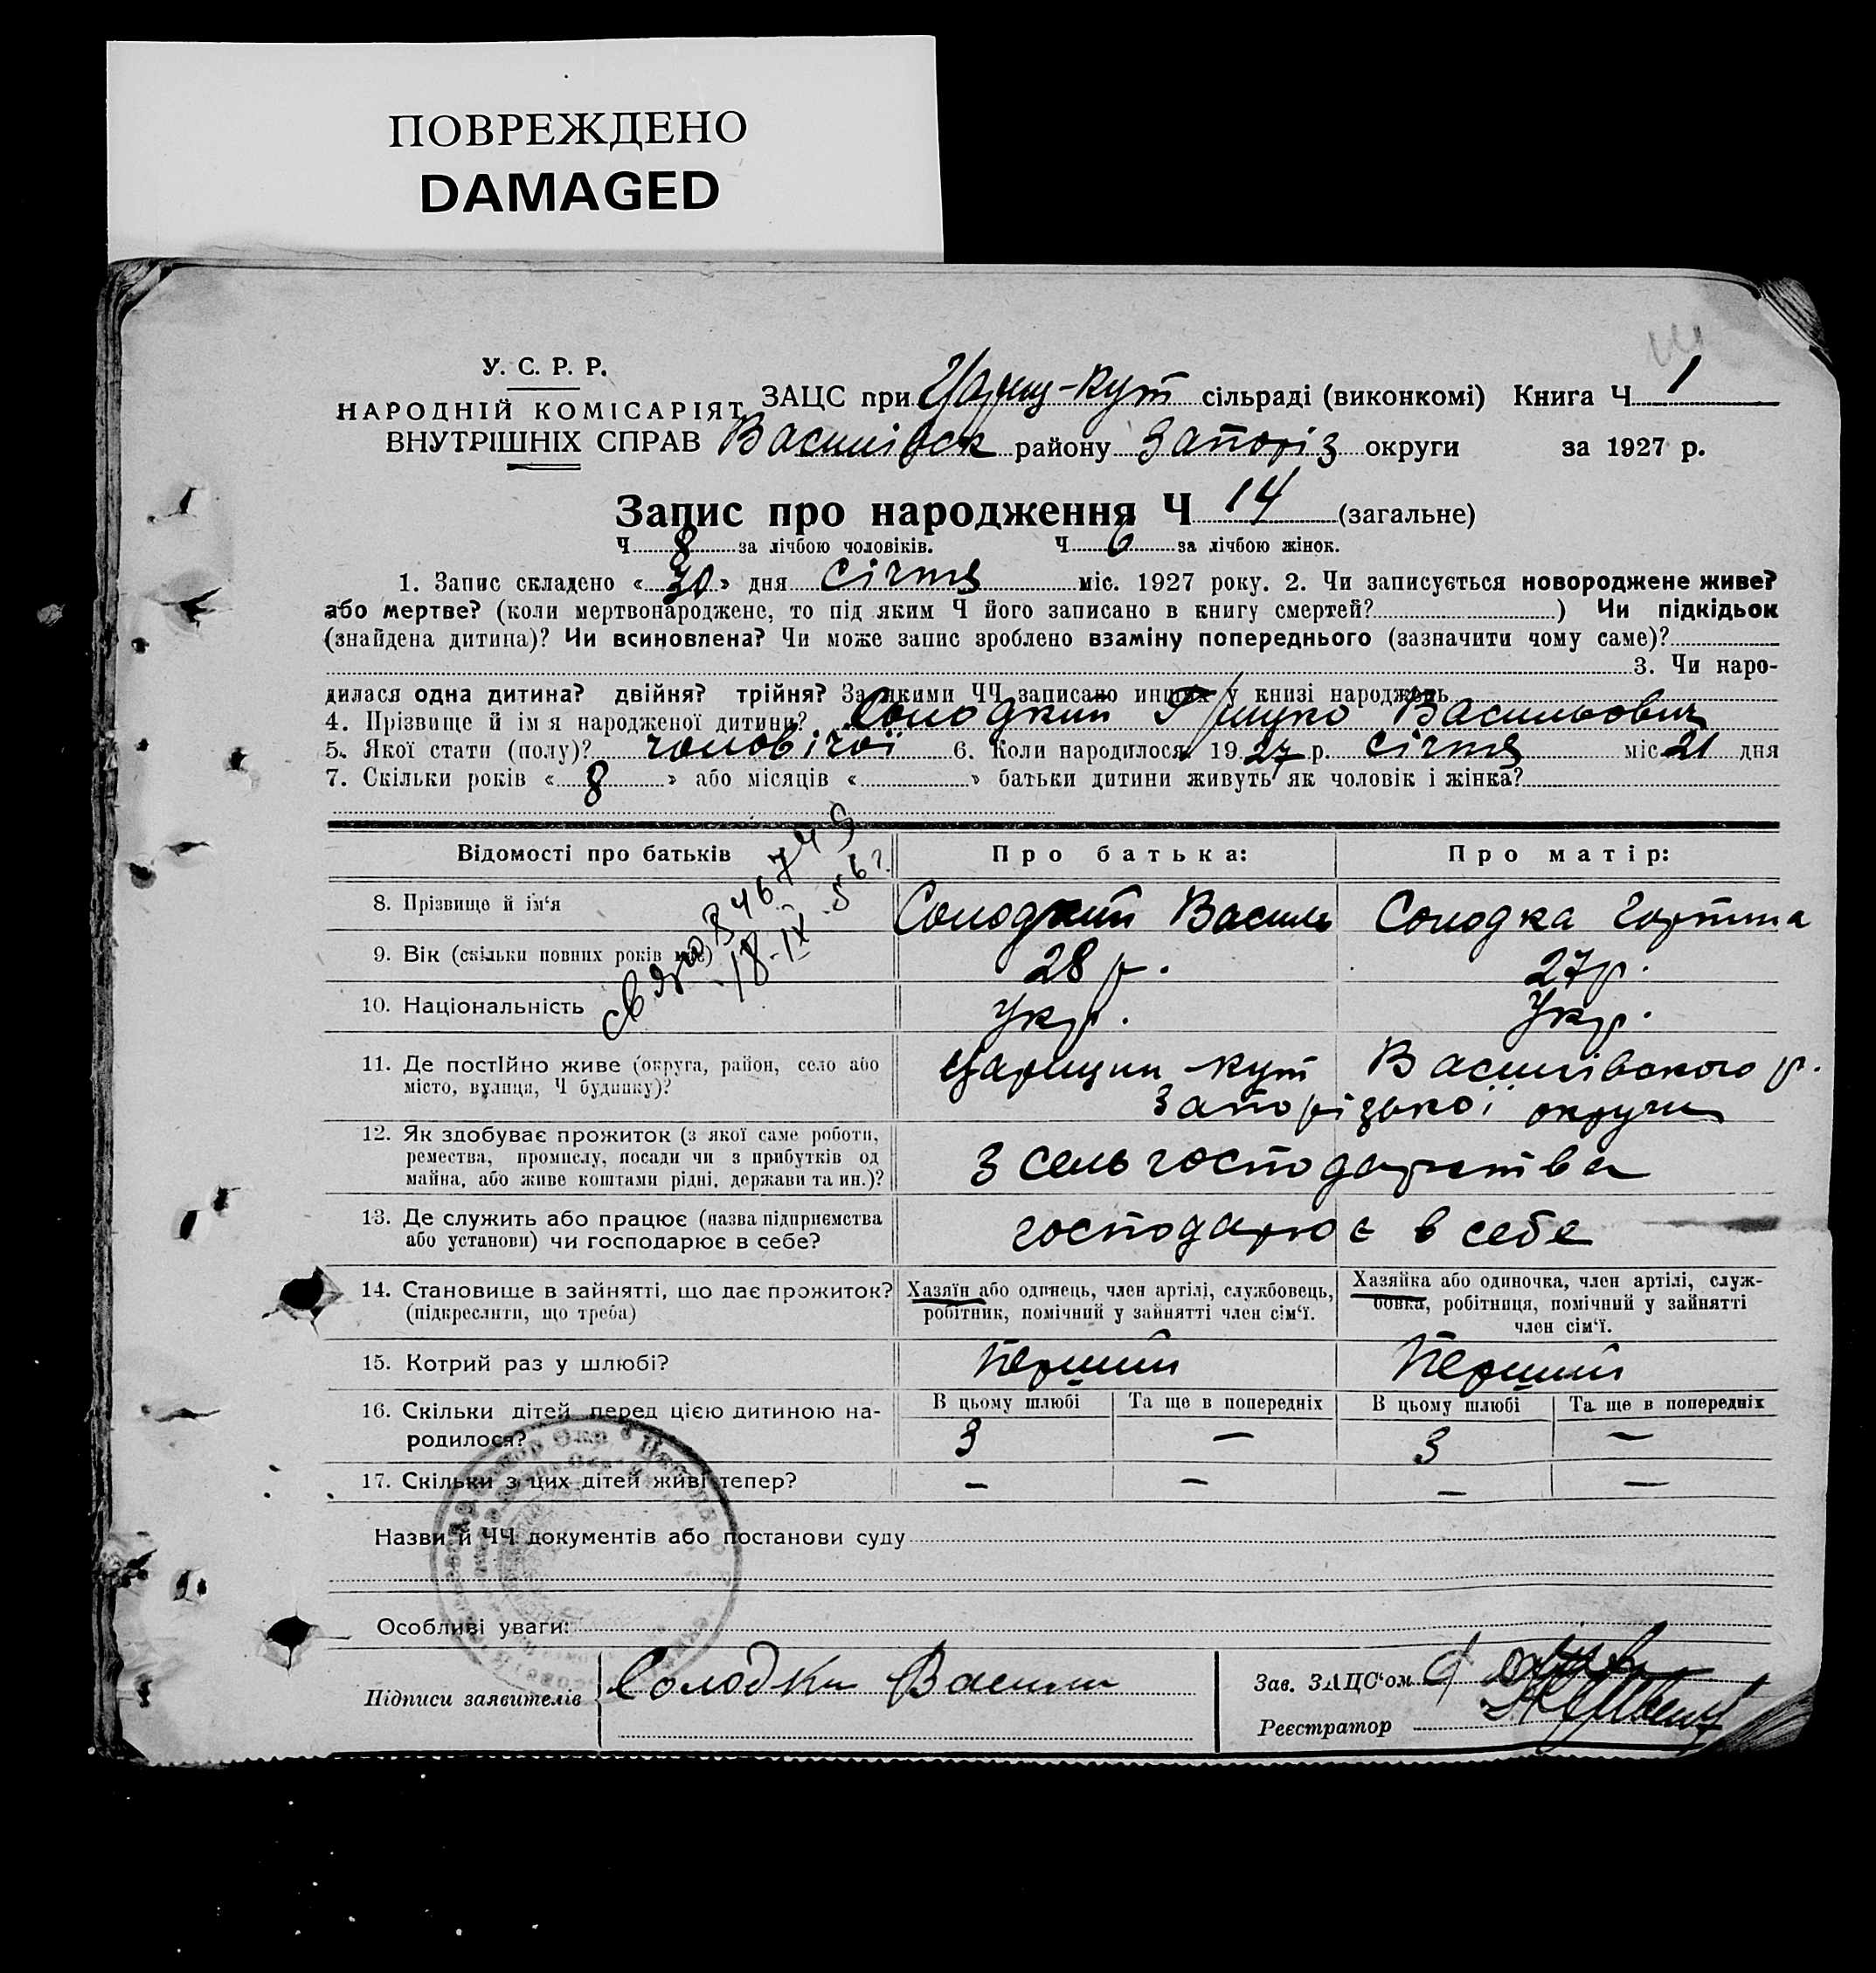 ПОВРЕЖДЕНО
DAMAGED
У. С. Р. Р.
НАРОДНІЙ КОМІСАРІЯТ
ВНУТРІШНІХ СПРАВ
ЗАЦС при Цариц-Кут сільраді (виконкомі) Книга Ч 1
Василівськ району Запоріз округи за 1927 р.
Запис про народження Ч 14 (загальне)
Ч 8 за лічбою чоловіків. Ч 6 за лічбою жінок.
1. Запис складено « 30 » дня січня міс. 1927 року. 2. Чи записується новороджене живе?
або мертве? (коли мертвонароджене, то під яким Ч його записано в книгу смертей? ) Чи підкідьок
(знайдена дитина)? Чи всиновлена? Чи може запис зроблено взаміну попереднього (зазначити чому саме)?
3. Чи наро-
дилася одна дитина? двійня? трійня? За якими ЧЧ записано инших у книзі народжень
4. Прізвище й ім'я народженої дитини? Солодкий Грицко Васильович
5. Якої стати (полу)? чоловічої 6. Коли народилося 1927 р. січня міс 21 дня
7. Скільки років « 8 » або місяців « » батьки дитини живуть як чоловік і жінка?
Відомості про батьків Про батька: Про матір:
8. Прізвище й ім'я Солодкий Василь Солодка Горпина
9. Вік (скільки повних років має) 28 р. 27 р.
10. Національність Укр. Укр.
18-IX-56 г.
11. Де постійно живе (округа, район, село або
місто, вулиця, Ч будинку)?
Царицин Кут Василівського р.
Запорізької округи
12. Як здобуває прожиток (з якої саме роботи,
ремества, промислу, посади чи з прибутків од
майна, або живе коштами рідні, держави та ин.)?
З сельгосподарства
13. Де служить або працює (назва підприємства
або установи) чи господарює в себе?
господарює в себе
14. Становище в зайнятті, що дає прожиток?
(підкреслити, що треба)
Хазяїн або одинець, член артілі, службовець,
робітник, помічний у зайнятті член сім'ї.
Хазяйка або одиночка, член артілі, служ-
бовка, робітниця, помічний у зайнятті
член сім'ї.
15. Котрий раз у шлюбі? Перший Перший
16. Скільки дітей перед цією дитиною на-
родилося?
В цьому шлюбі Та ще в попередніх В цьому шлюбі Та ще в попередніх
3 — 3 —
17. Скільки з цих дітей живі тепер? — — — —
Назви й ЧЧ документів або постанови суду
Особливі уваги:
Підписи заявителів Солодки Васили
Зав. ЗАЦС'ом
Реєстратор